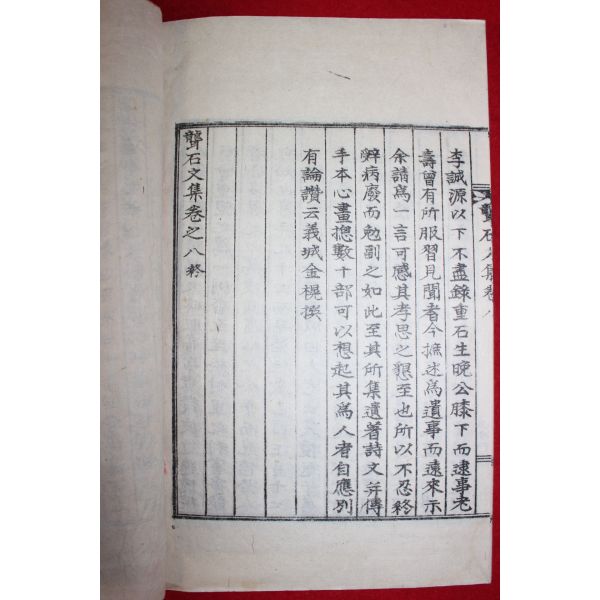 聾石文集卷八
李誠源以下不盡錄重石生晩公膝下而逮事老
壽曾有所服習見聞者今摭述爲遺事而遠來示
余請爲一言可感其孝思之懇至也所以不忍終
辭病廢而勉副之如此至其所集遺著詩文并傳
手本心畫摠數十部可以想起其爲人者自應別
有論讚云義城金榥撰
聾石文集卷之八終